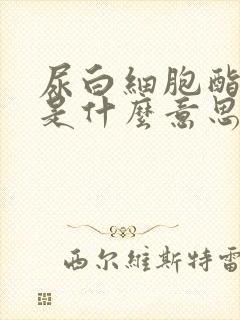 尿白細胞酯
是什麼意思
西尔維斯特雷